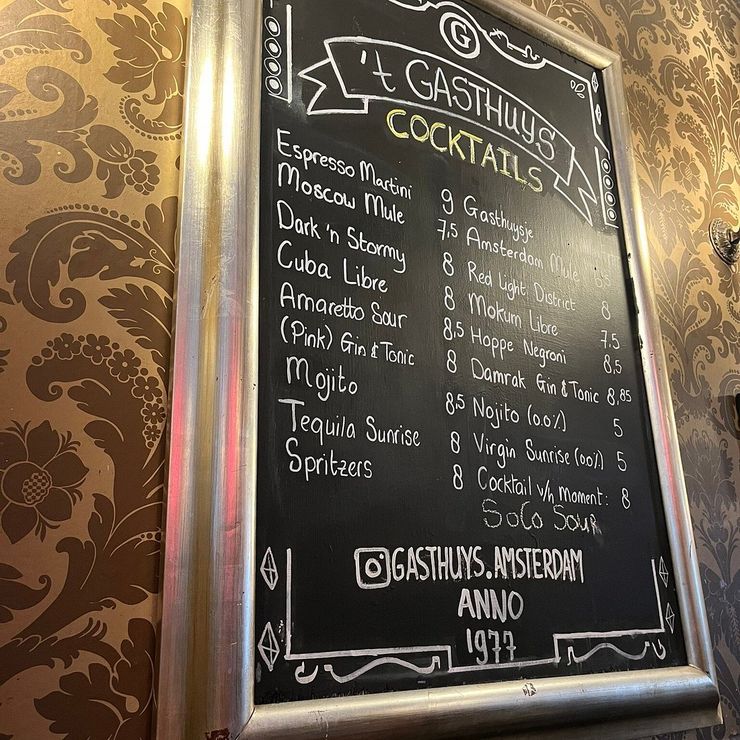 G
't GASTHUYS
COCKTAILS
Espresso Martini 9
Moscow Mule 7,5
Dark 'n Stormy 8
Cuba Libre 8
Amaretto Sour 8,5
(Pink) Gin & Tonic 8
Mojito 8,5
Tequila Sunrise 8
Spritzers 8
Gasthuysje
Amsterdam Mule
Red Light District 8
Mokum Libre 7.5
Hoppe Negroni 8,5
Damrak Gin & Tonic 8,85
Nojito (0.0%) 5
Virgin Sunrise (00%) 5
Cocktail v/h moment: 8
SoCo Sour
GASTHUYS.AMSTERDAM
ANNO
1977